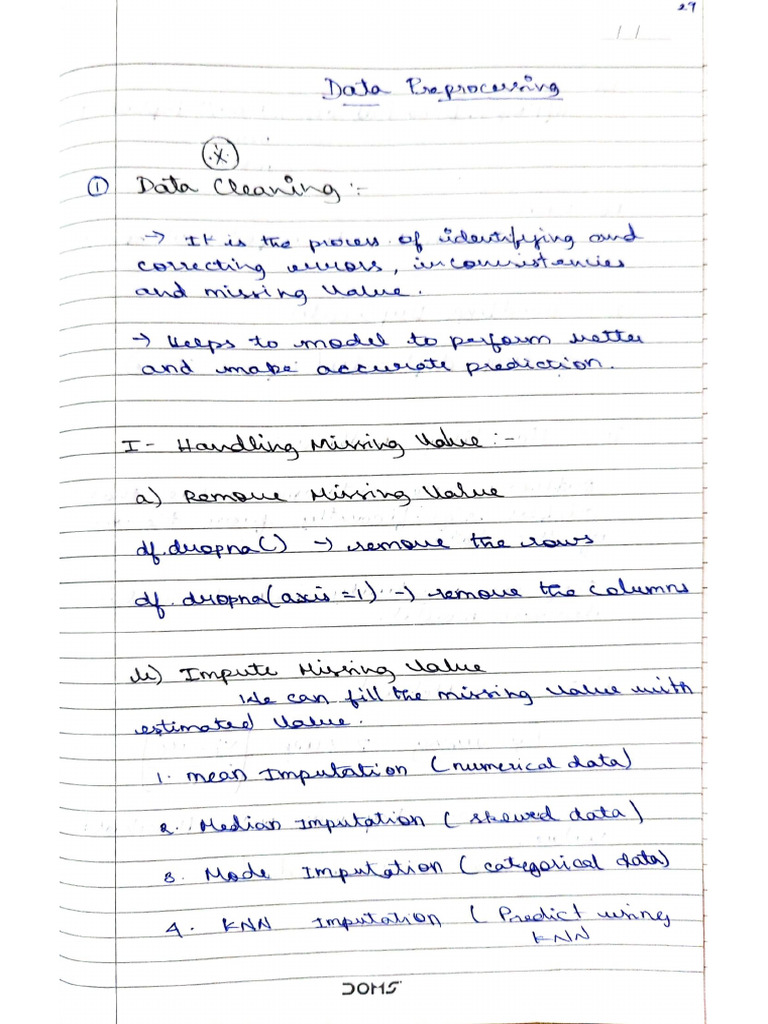 29
/ /
Data Preprocessing
*
① Data Cleaning :-
→ It is the process of identifying and
correcting errors, inconsistencies
and missing value.
→ Helps to model to perform better
and make accurate prediction.
I - Handling Missing Value :-
a) Remove Missing Value
df.dropna() → remove the rows
df.dropna(axis=1) → remove the columns
b) Impute Missing Value
We can fill the missing value with
estimated value.
1. mean Imputation (numerical data)
2. Median Imputation (skewed data)
3. Mode Imputation (categorical data)
4. KNN Imputation (Predict using
KNN
DOMS